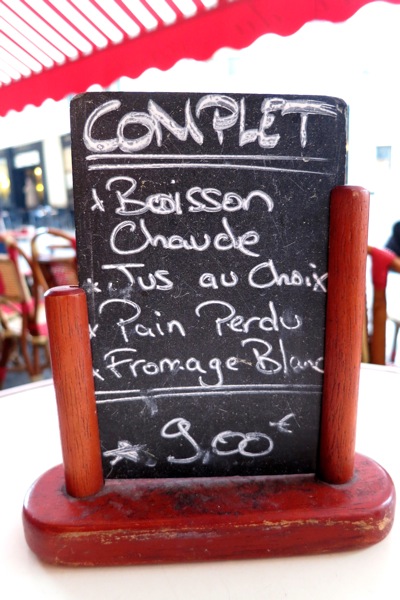 COMPLET
* Boisson
Chaude
* Jus au Choix
* Pain Perdu
* Fromage Blanc
* 9,00 €